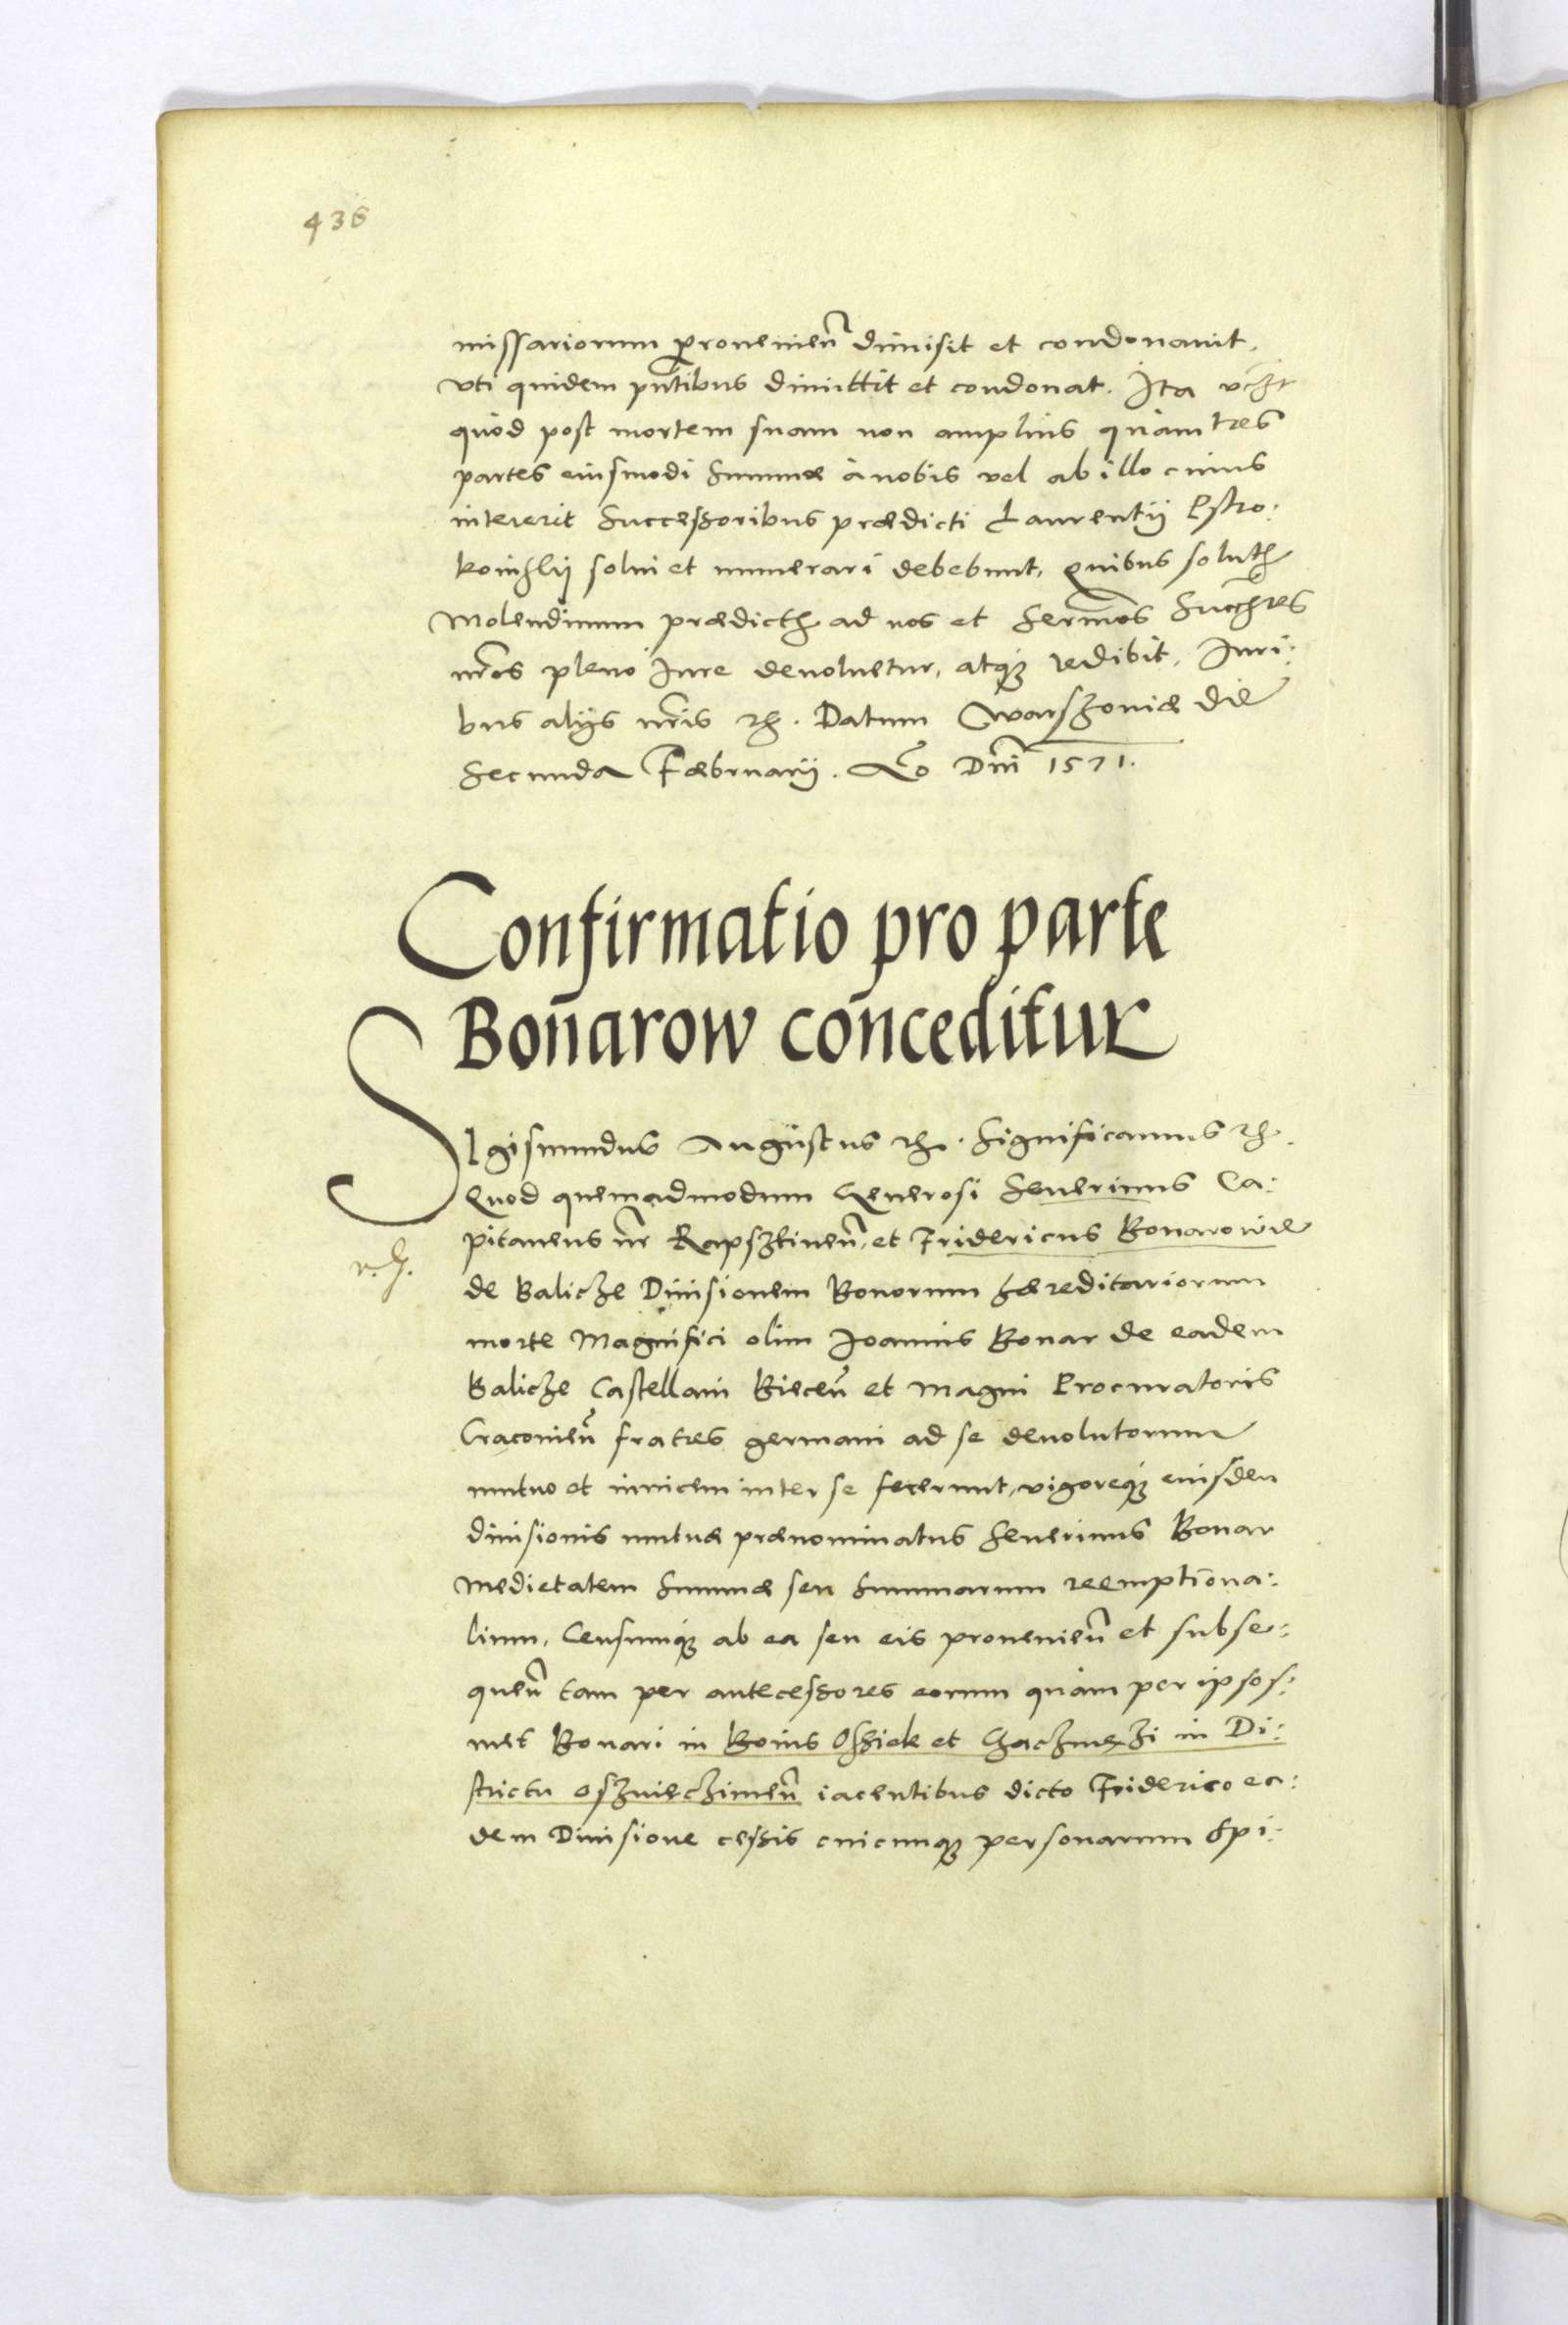 436
missariorum provenien̄ dimisit et condonavit,
vti quidem pn̄tibus dimittit et condonat. Ita vczt
quòd post mortem suam non amplius quàm tres
partes eiusmodi Summæ à nobis vel ab illo cuius
intererit Successoribus prædicti Laurentij Pstro:
koinsky solui et numerari debebunt, quibus solut
Molendinum prædict ad nos et Serm̄os Succres
nr̄os pleno Iure devoluetur, atq3 redibit, Iuri:
bus alijs nr̄is etc. Datum Warszoviæ die
Secunda Fæbruarij. Ao Dn̄i 1571.
Confirmatio pro parte
Bonarow conceditur
SIgismundus Augustus etc. Significamus etc.
Quod quemadmodum Generosi Seuerinus Ca:
pitaneus nr̄ Rapsztinen̄, et Fridericus Bonarowie
r. h.
de Balicze Diuisionem Bonorum hæreditariorum
morte Magnifici olim Ioannis Bonar de eadem
Balicze Castellani Biecen̄ et Magni Procuratoris
Cracouien̄ fratres germani ad se deuolutorum
mutuo et inuicem inter se fecerunt, vigoreq3 eiusdem
diuisionis mutuæ prænominatus Seuerinus Bonar
Medietatem Summæ seu Summarum reemptiona:
lium, Censumq3 ab ea seu eis prouenien̄ et subse:
quen̄ tam per antecessores eorum quàm per ipsos:
met Bonari in Bonis Ossiek et Chaczmezi in Di:
strictu Oszwieczimen̄ iacentibus dicto Friderico ea:
dem Diuisione cessis cuicunq3 personarum Spi: